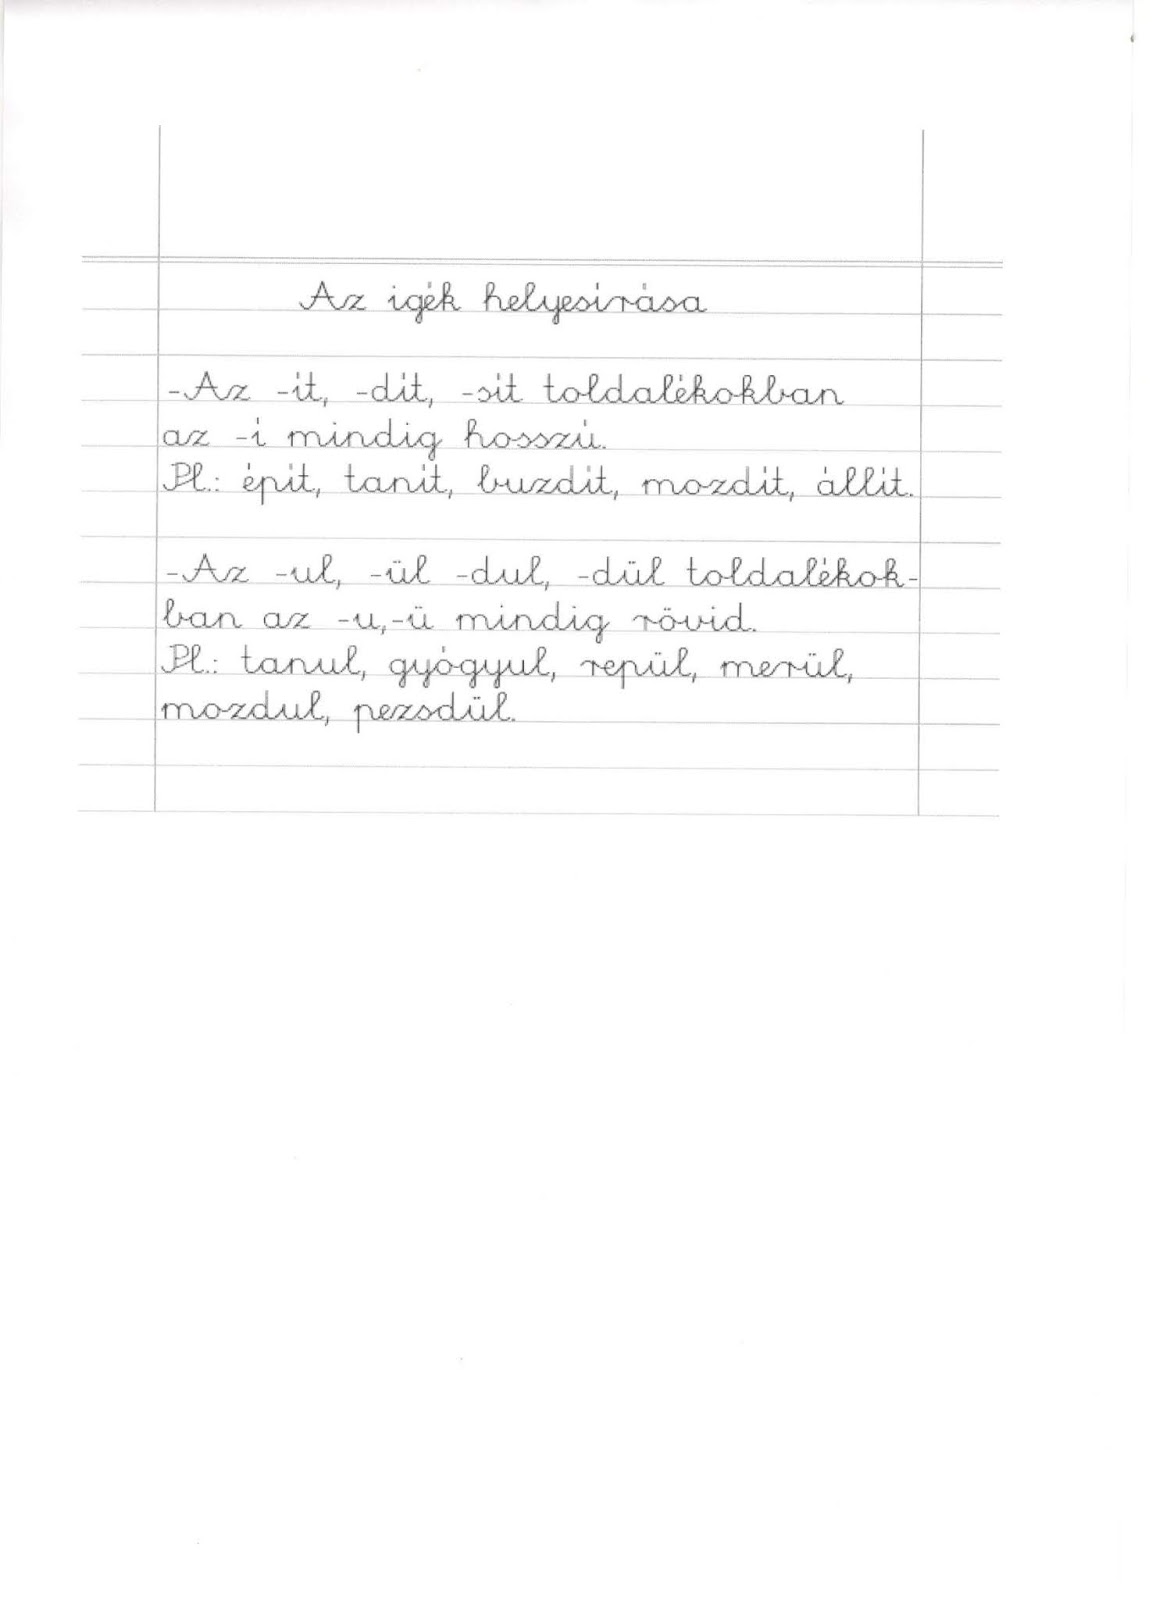 Az igék helyesírása
-Az -ít, -dít, -sít toldalékokban
az -í mindig hosszú.
Pl.: épít, tanít, buzdít, mozdít, állít.
-Az -ul, -ül -dul, -dül toldalékok-
ban az -u,-ü mindig rövid.
Pl.: tanul, gyógyul, repül, merül,
mozdul, pezsdül.